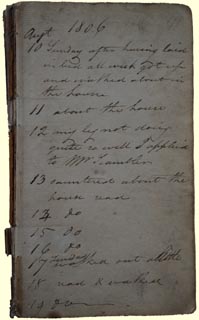 Augt 1806
10 Sunday after having laid
in bed all wish got up
and walked about in
the house
11 about the house
12 my leg not doing
quite so well I applied
to Mr
13 sauntered about the
house read
14 do
15 do
16 do
17 Sunday walked out a little
18 read & walked
19 do